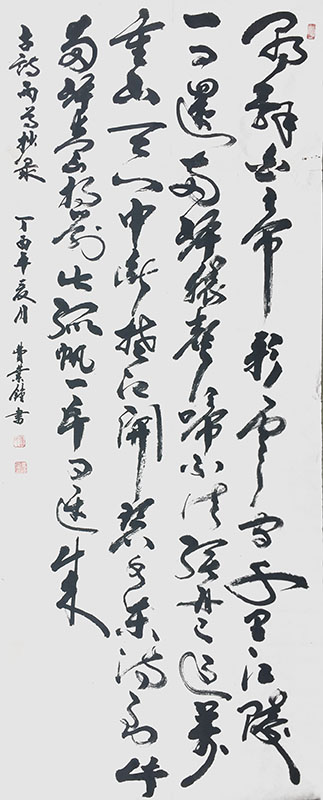 朝辭白帝彩雲間千里江陵
一日還兩岸猿聲啼不住輕舟已過萬
重山天門中斷楚江開碧水東流至此
兩岸青山相對出孤帆一片日邊來
古詩兩首抄錄 丁酉年夏月 書